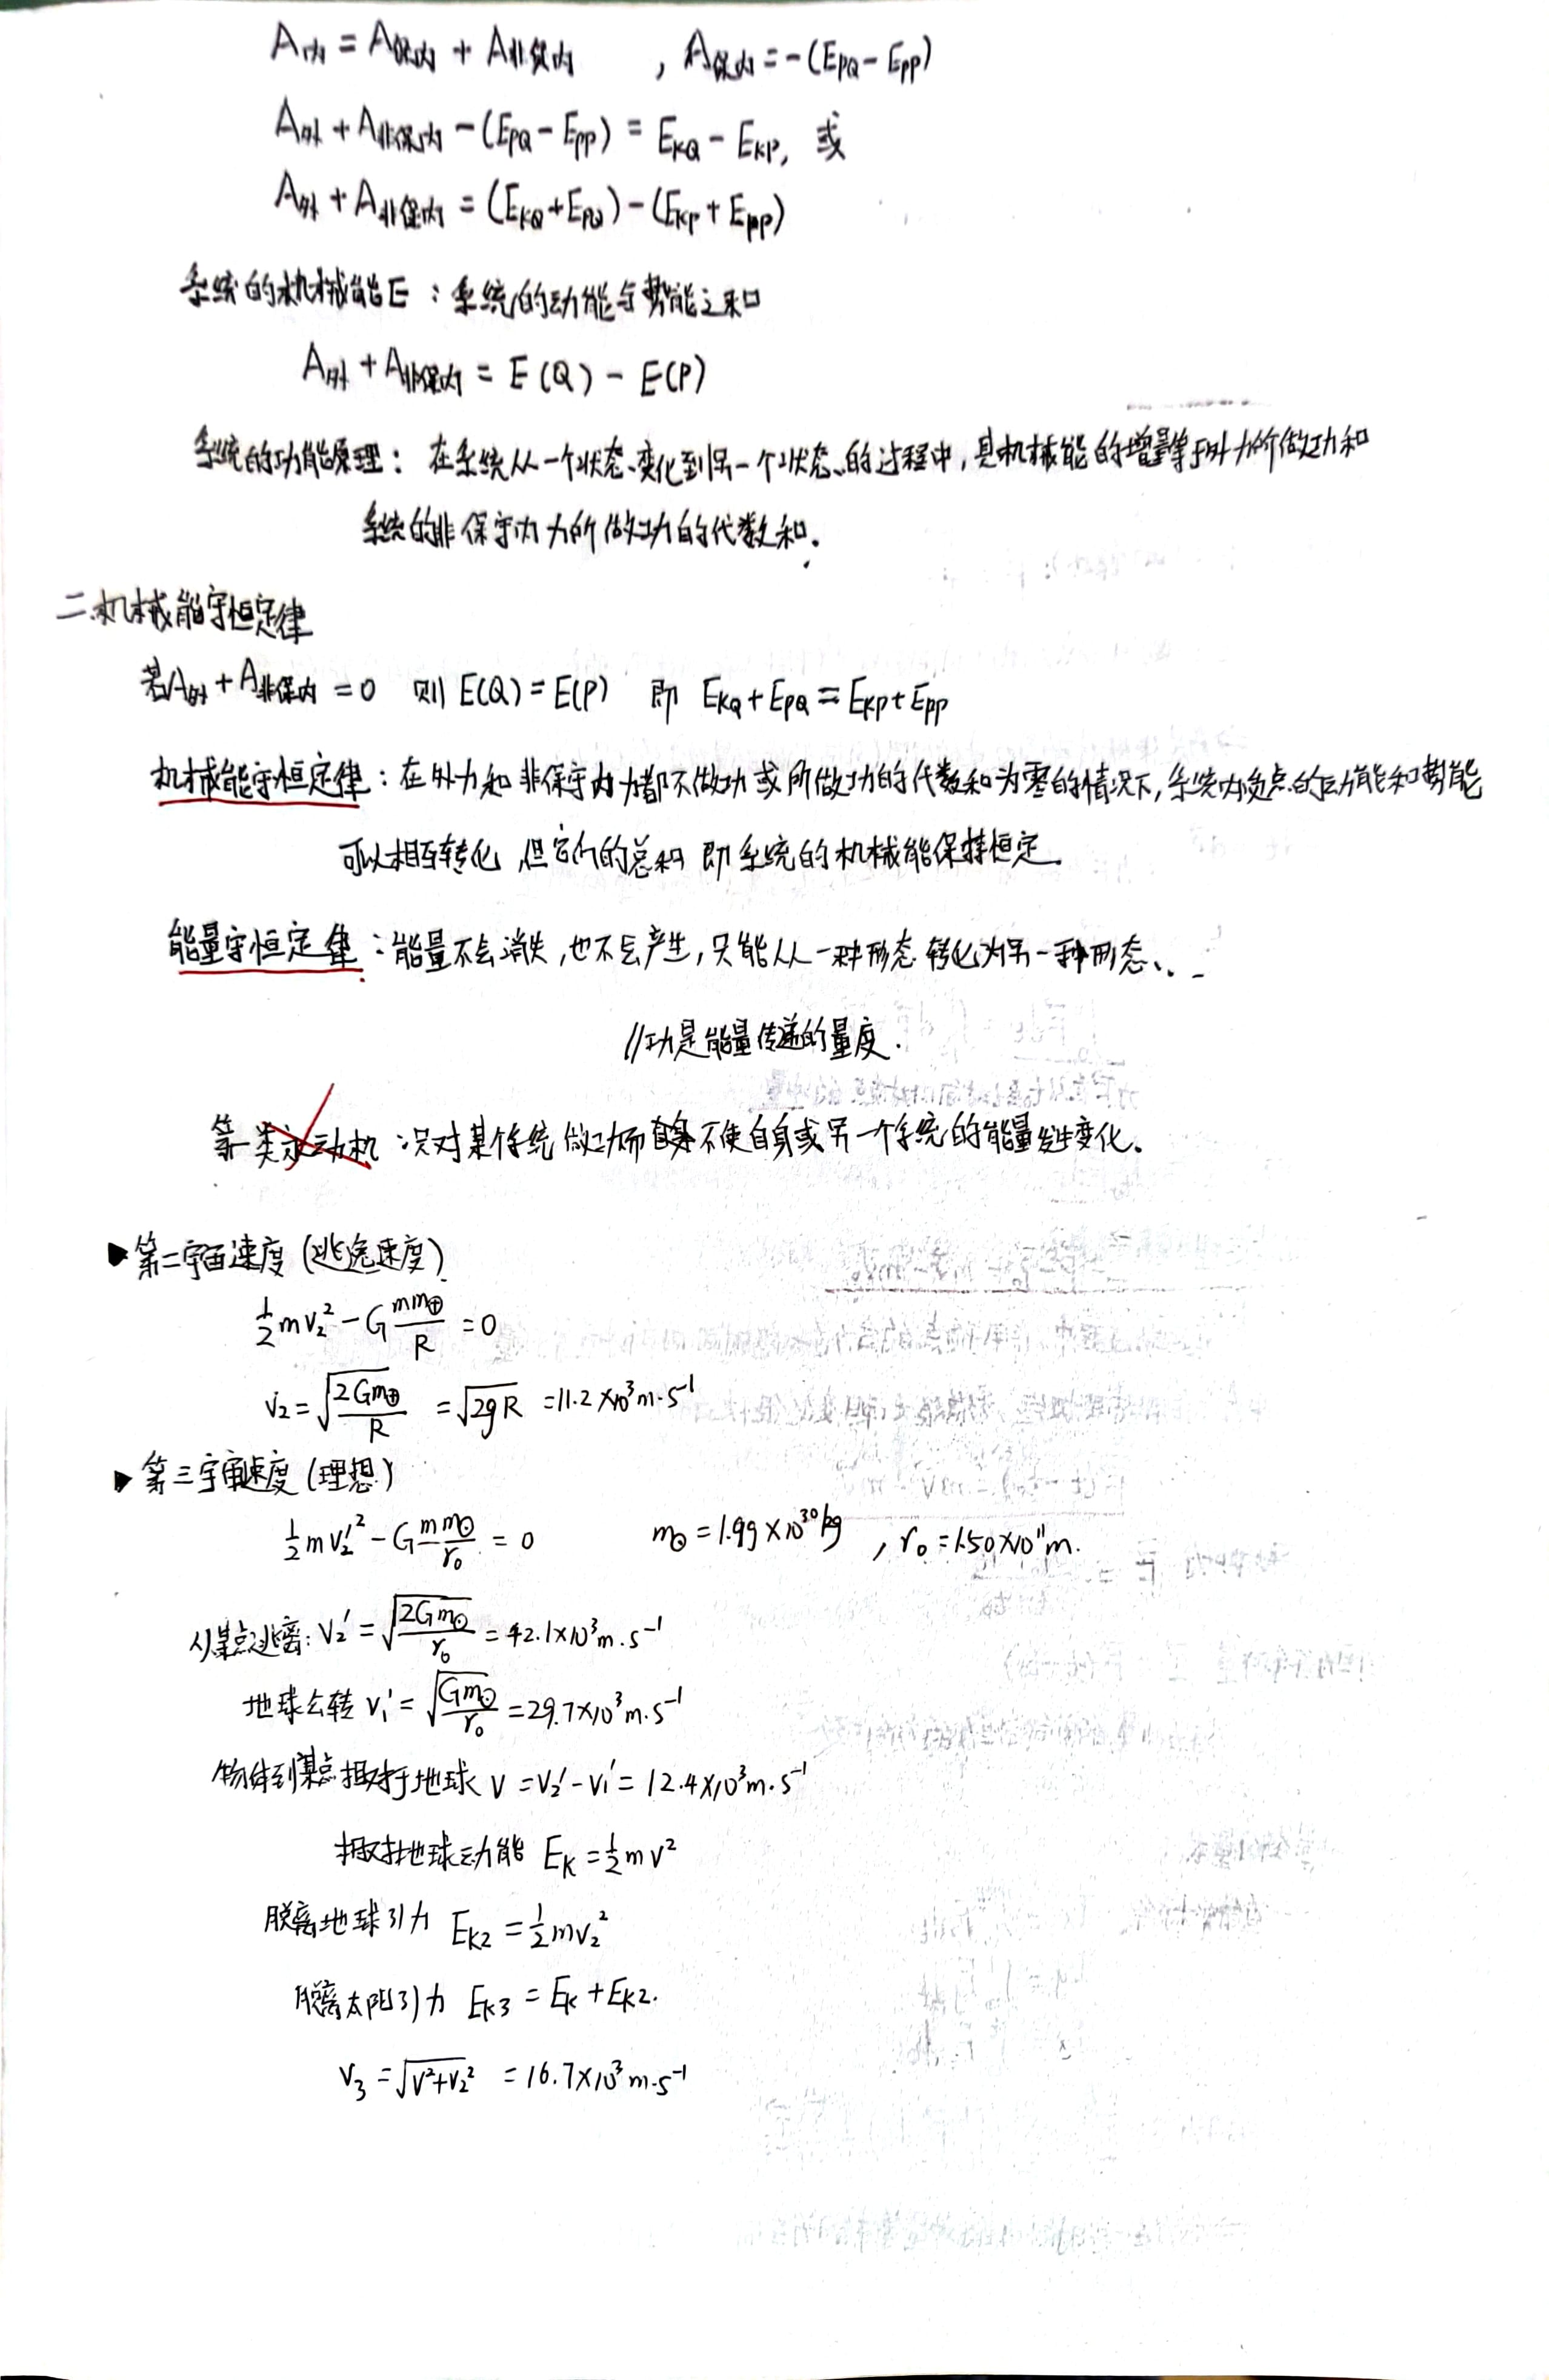 A内 = A保内 + A非保内 , A保内 = -(E_PQ - E_PP)
A外 + A非保内 - (E_PQ - E_PP) = E_KQ - E_KP, 或
A外 + A非保内 = (E_KQ + E_PQ) - (E_KP + E_PP)
系统的机械能E：系统的动能与势能之和
A外 + A非保内 = E(Q) - E(P)
系统的功能原理：在系统从一个状态变化到另一个状态的过程中,其机械能的增量等于外力所做功和
系统的非保守内力所做功的代数和.
二.机械能守恒定律
若A外 + A非保内 = 0 则 E(Q) = E(P) 即 E_KQ + E_PQ = E_KP + E_PP
机械能守恒定律：在外力和非保守内力都不做功或所做功的代数和为零的情况下,系统内质点的动能和势能
可以相互转化,但它们的总和即系统的机械能保持恒定.
能量守恒定律：能量不会消失,也不会产生,只能从一种形态转化为另一种形态...
//功是能量传递的量度.
第一类永动机：只对某个系统做功而不使自身或另一个系统的能量发生变化.
▶第二宇宙速度(逃逸速度)
½mv₂² - G mm⊕/R = 0
v₂ = √(2Gm⊕/R) = √(2gR) = 11.2×10³m·s⁻¹
▶第三宇宙速度(理想)
½mv₂'² - G mm⊙/r₀ = 0 m⊙ = 1.99×10³⁰kg , r₀ = 1.50×10¹¹m.
从某点逃离: v₂' = √(2Gm⊙/r₀) = 42.1×10³m·s⁻¹
地球公转 v₁' = √(Gm⊙/r₀) = 29.7×10³m·s⁻¹
物体到某点相对于地球 v = v₂' - v₁' = 12.4×10³m·s⁻¹
相对地球动能 E_K = ½mv²
脱离地球引力 E_K2 = ½mv₂²
脱离太阳引力 E_K3 = E_K + E_K2.
v₃ = √(v²+v₂²) = 16.7×10³m·s⁻¹